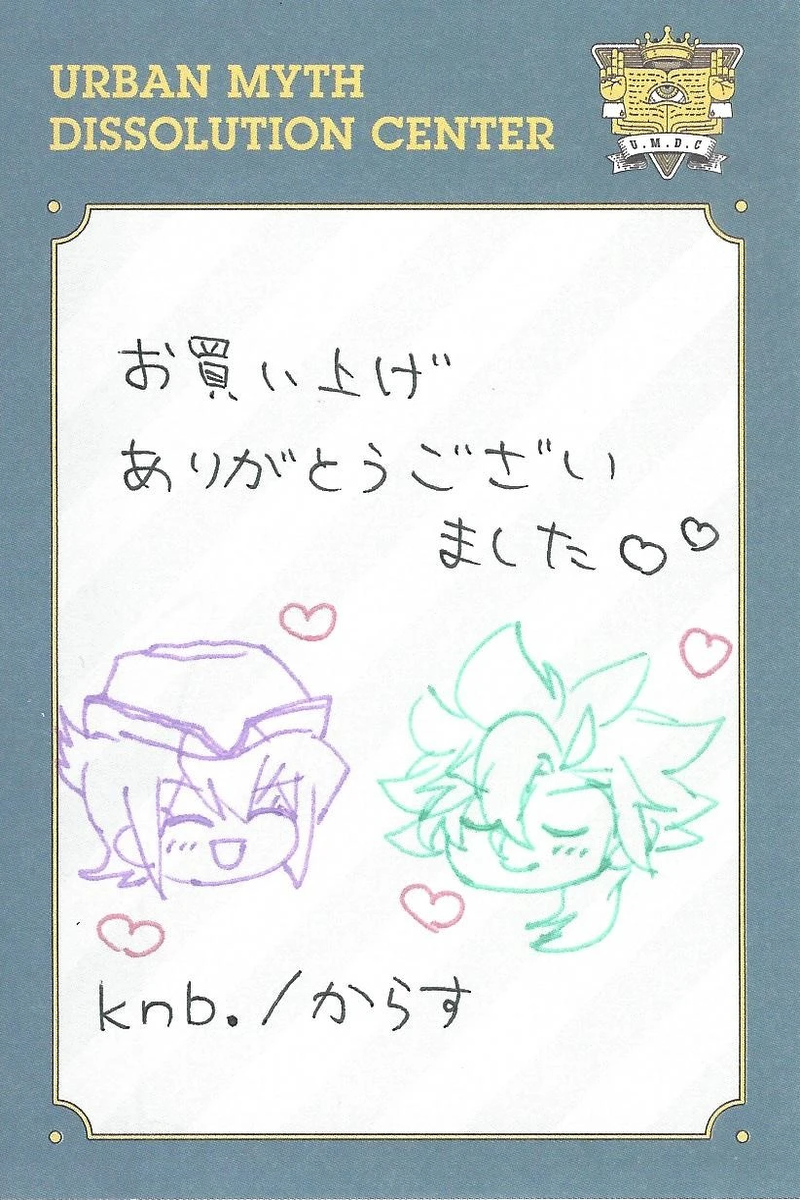 URBAN MYTH
DISSOLUTION CENTER
U.M.D.C
お買い上げ
ありがとうござい
ました♡♡
knb./からす